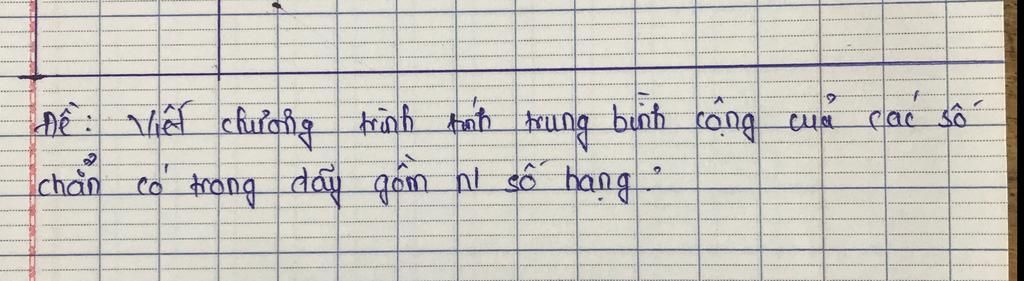 Đề: Viết chương trình tính trung bình cộng của các số
chẵn có trong dãy gồm n số hạng?